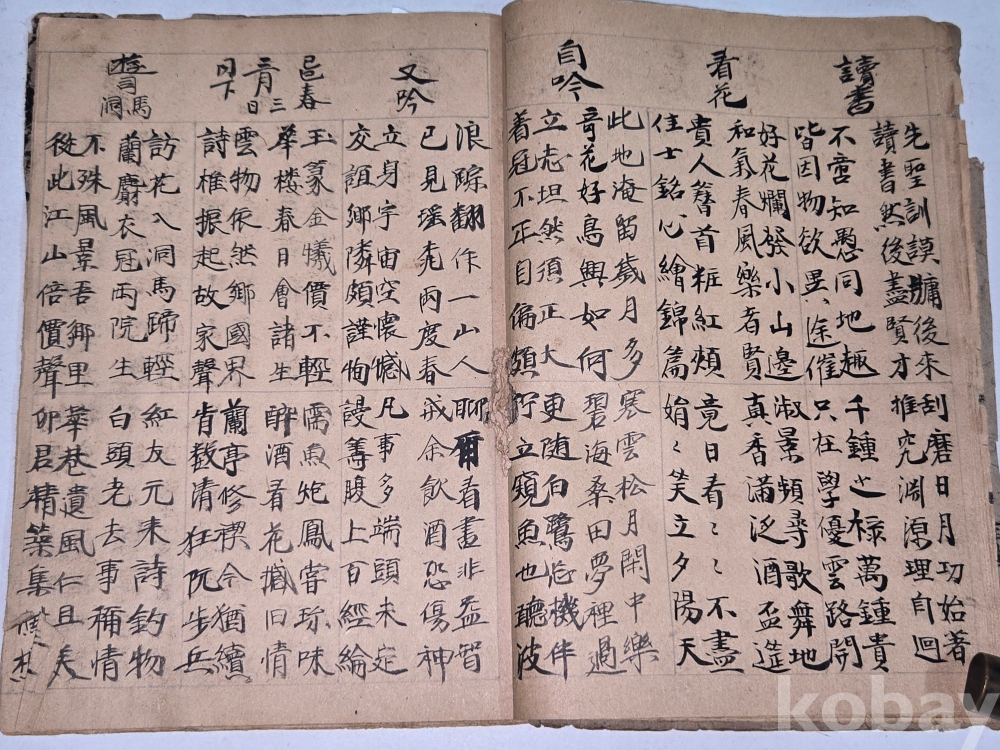 讀書
先聖訓謨牖後來 刮磨日月功始著
讀書然後盡賢才 推究淵源理自迴
不啻知愚同地趣 千鍾之祿萬鍾貴
皆因物欲異途催 只在學優雲路開
看花
好花爛發小山邊 淑景頻尋歌舞地
和氣春風樂者賢 真香滿泛酒盃筵
貴人簪首粧紅頰 竟日看看看不盡
佳士銘心繪錦篇 娟娟笑立夕陽天
自吟
此地淹留歲月多 寒雲松月閑中樂
奇花好鳥興如何 碧海桑田夢裡過
立志坦然須正大 更随白鷺忘機伴
着冠不正目偏頗 佇立窺魚也聽波
又吟
浪踪翻作一山人 聊爾看書非益智
已見瑤光兩度春 戒余飲酒恐傷神
立身宇宙空懷憾 凡事多端頭未定
交誼鄉隣頗謹恂 謾等腹上百經綸
邑春
三月
三日
玉篆金犧價不輕 霈魚炮鳳嘗珍味
華楼春日會諸生 醉酒看花撼旧情
雲物依然鄉國界 蘭亭修禊今猶續
詩椎振起故家聲 肯教清狂阮步兵
馬洞
訪花入洞馬蹄輕 紅友元来詩釣物
蘭麝衣冠兩院生 白頭老去事稱情
不殊風景吾鄉里 華巷遺風仁且美
從此江山倍價聲 卯君精築集
kobay